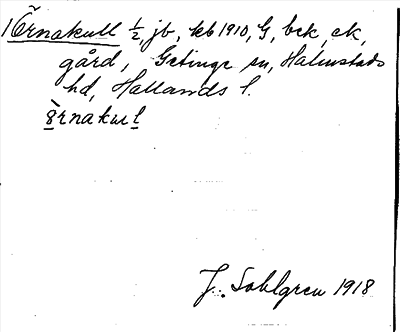 1 Örnakull ½, jb, kb 1910, G, bek, ek,
gård, Getinge sn, Halmstads
hd, Hallands l.
ö̀rnakul
J. Sahlgren 1918